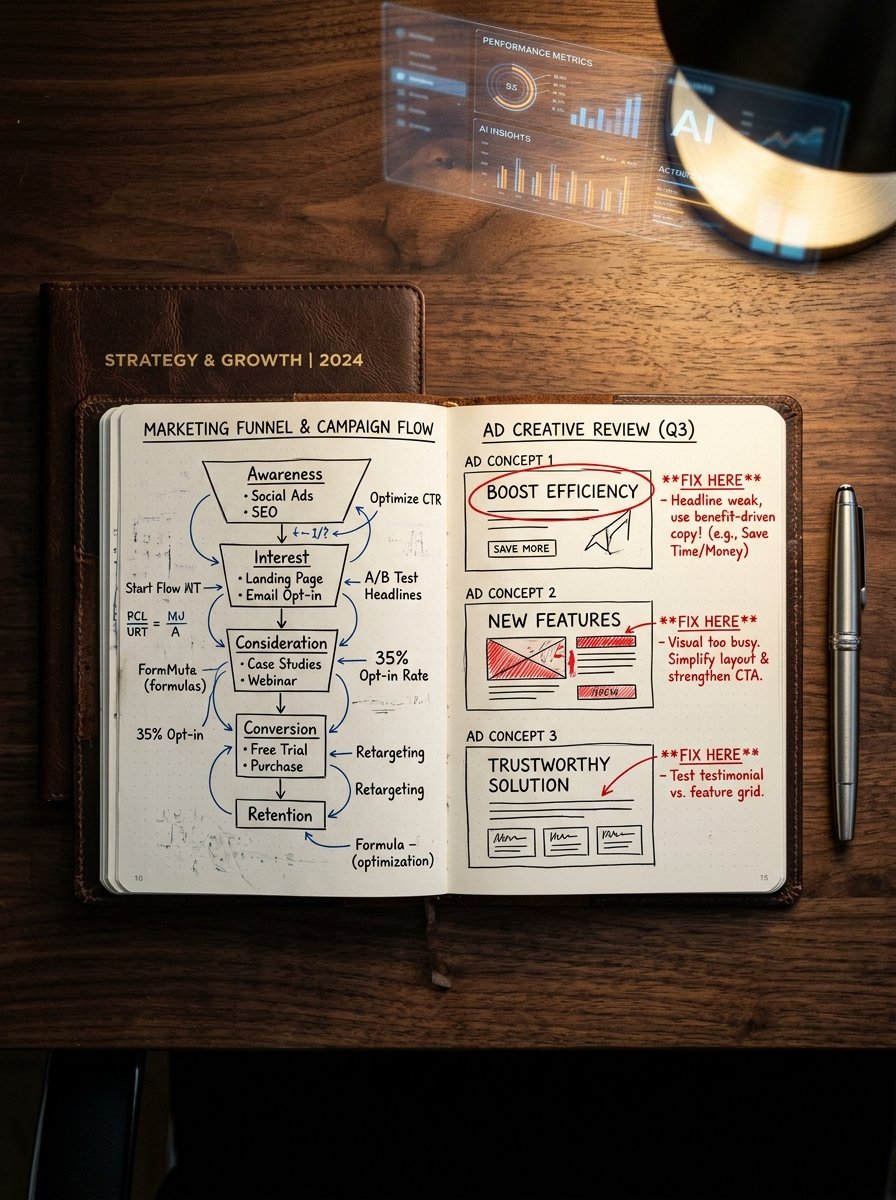 PENFORMANCE METRICS
AI INSIGHTS
AI
STRATEGY & GROWTH | 2024
MARKETING FUNNEL & CAMPAIGN FLOW
Awareness
• Social Ads
• SEO
Optimize CTR
Interest
• Landing Page
• Email Opt-in
A/B Test
Headlines
Start Flow
PCL
URT
=
MJ
A
Consideration
• Case Studies
• Webinar
35%
Opt-in Rate
FormMute
(formulas)
35% Opt-in
Conversion
• Free Trial
• Purchase
Retargeting
Retargeting
Retention
Formula –
(optimization)
10
AD CREATIVE REVIEW (Q3)
AD CONCEPT 1
BOOST EFFICIENCY
SAVE MORE
**FIX HERE**
– Headline weak,
use benefit-driven
copy! (e.g., Save
Time/Money)
AD CONCEPT 2
NEW FEATURES
**FIX HERE**
– Visual too busy.
Simplify layout &
strengthen CTA.
AD CONCEPT 3
TRUSTWORTHY
SOLUTION
**FIX HERE**
– Test testimonial
vs. feature grid.
75